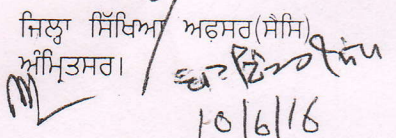 ਜ਼ਿਲ੍ਹਾ ਸਿੱਖਿਆ ਅਫ਼ਸਰ(ਸੈਸਿ)
ਅੰਮ੍ਰਿਤਸਰ।
10/6/16